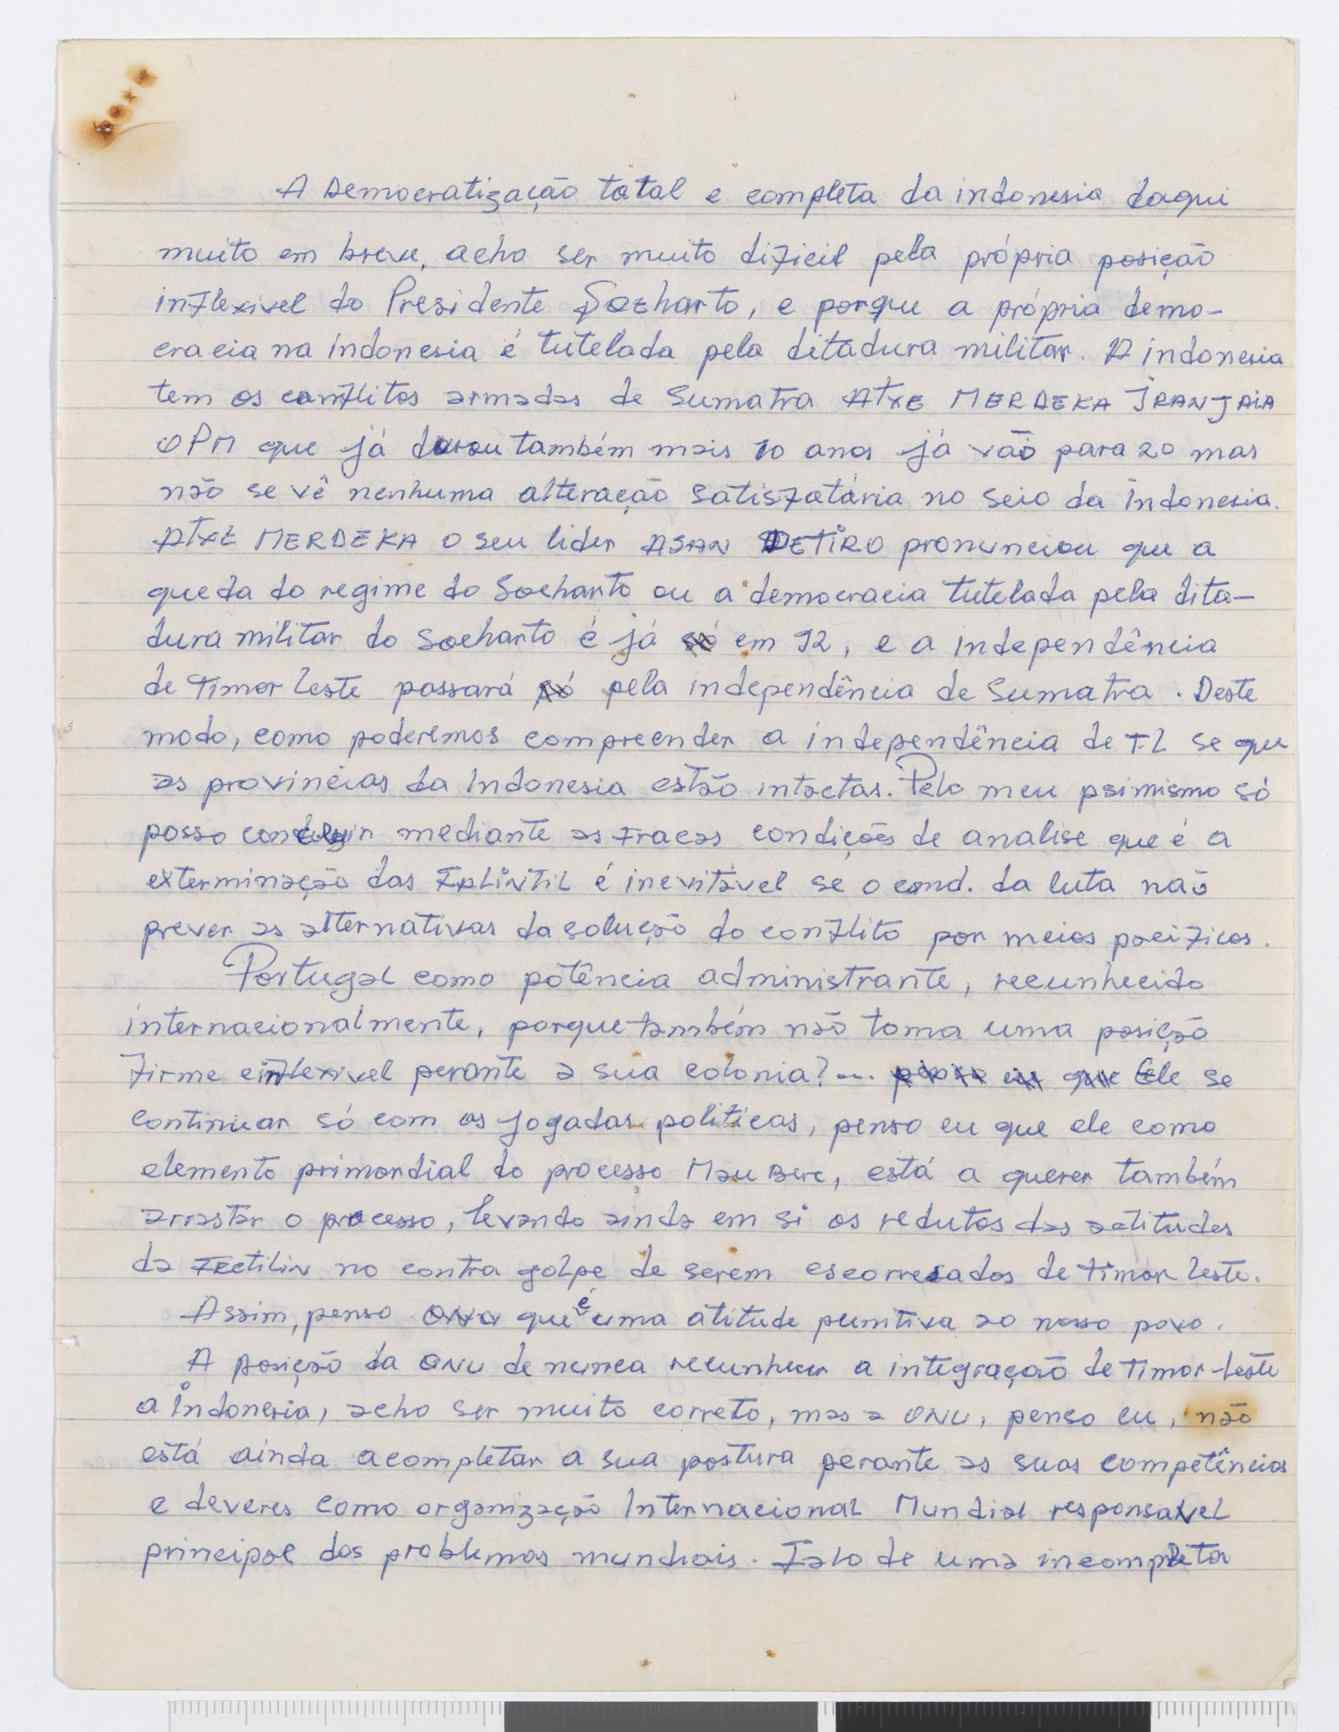 A Democratização total e completa da indonesia daqui
muito em breve, acho ser muito dificil pela própria posição
inflexivel do Presidente Soeharto, e porque a própria demo-
cracia na Indonesia é tutelada pela ditadura militar. A indonesia
tem os conflitos armados de Sumatra ATXE MERDEKA IRANJAIA
OPM que já durou também mais 10 anos já vão para 20 mas
não se vê nenhuma alteração satisfatária no seio da Indonesia.
ATXE MERDEKA o seu lider ASAN DETIRO pronunciou que a
queda do regime do Soeharto ou a democracia tutelada pela dita-
dura militar do Soeharto é já em 92, e a independência
de Timor Leste passará pela independência de Sumatra. Deste
modo, como poderemos compreender a independência de TL se que
as provincias da Indonesia estão intactas. Pelo meu psimismo só
posso concluir mediante as fracas condições de analise que é a
exterminação das FALINTIL é inevitável se o cmd. da luta não
prever as alternativas da solução do conflito por meios pacificos.
Portugal como potência administrante, recunhecido
internacionalmente, porque também não toma uma posição
firme e inflexivel perante a sua colonia?... Ele se
continuar só com as jogadas politicas, penso eu que ele como
elemento primordial do processo MauBere, está a querer também
arrastar o processo, levando ainda em si os redutos das actitudes
da FRETILIN no contra golpe de serem escorresados de Timor Leste.
Assim, penso que é uma atitude punitiva ao nosso povo.
A posição da ONU de nunca recunhecer a integração de Timor-Leste
a Indonesia, acho ser muito correto, mas a ONU, penso eu, não
está ainda acompletar a sua postura perante as suas competências
e deveres como organização Internacional Mundial responsavel
principal dos problemas mundiais. Falo de uma incompleta